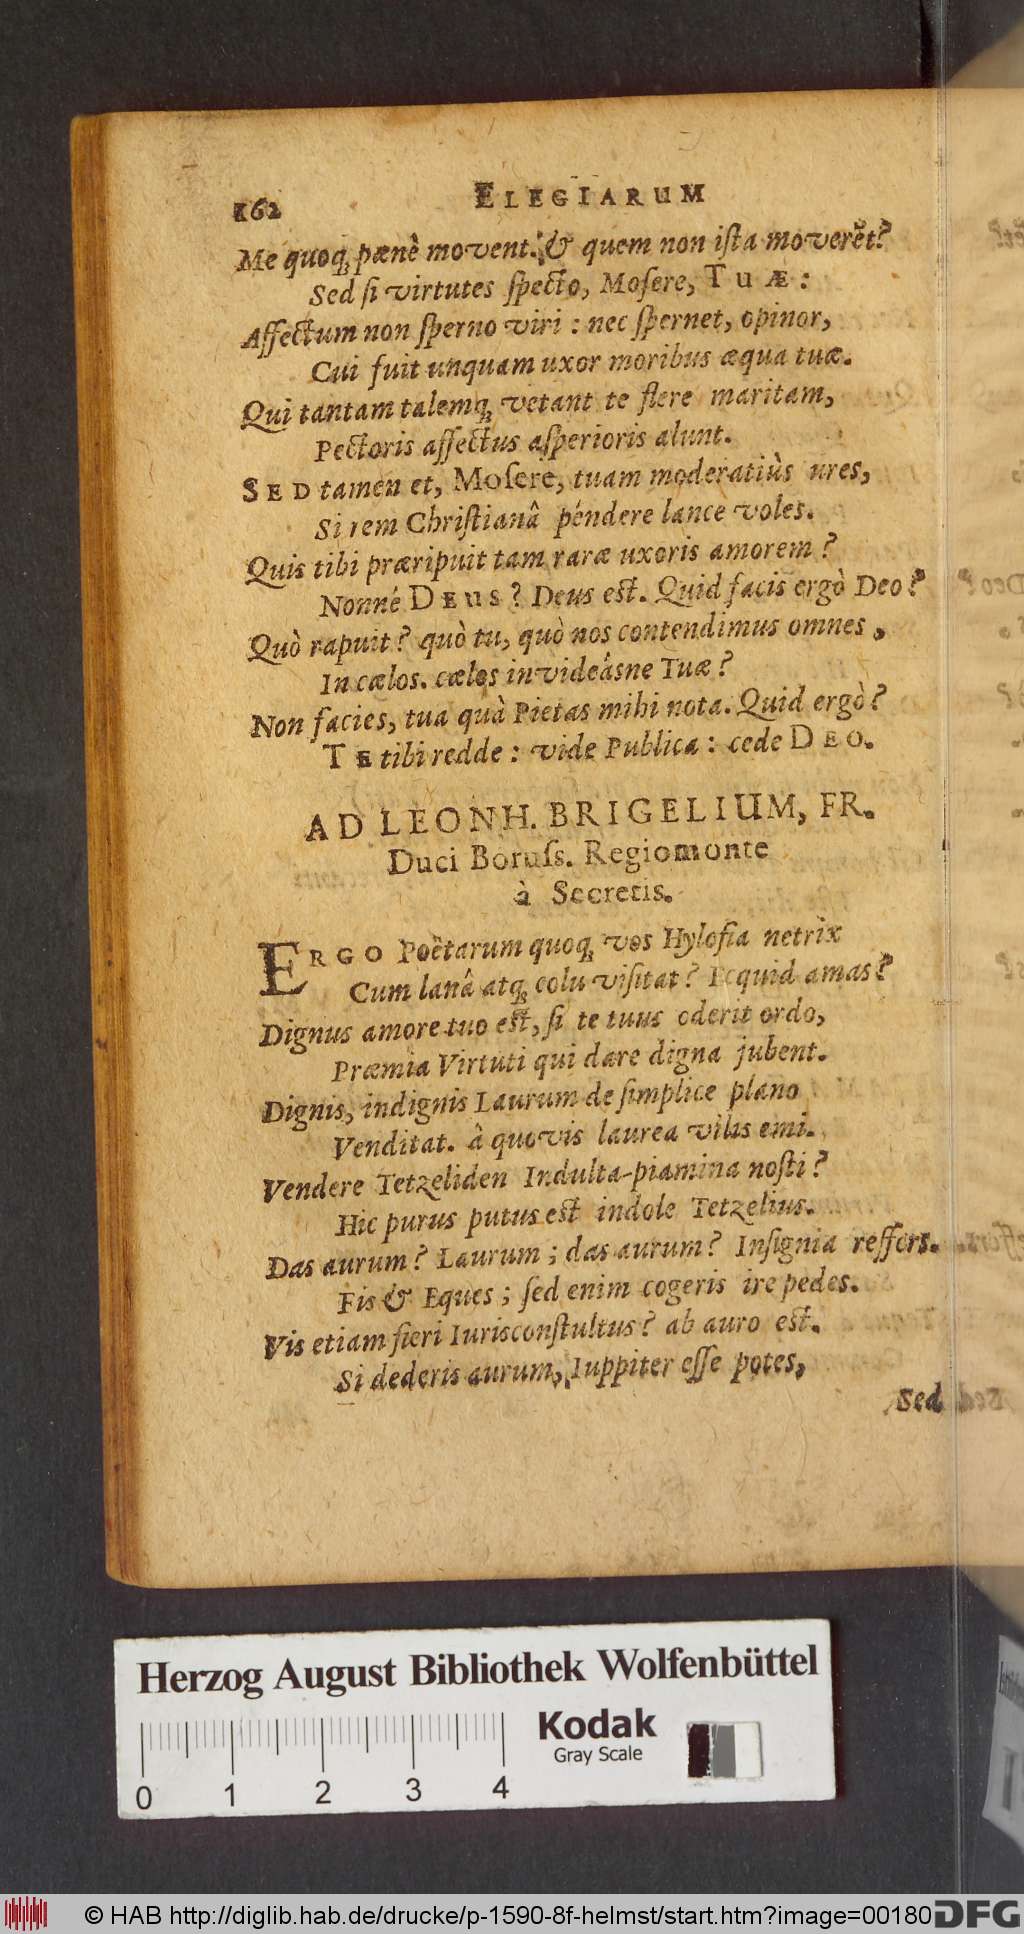 162 ELEGIARUM
Me quoq́ pænè movent. & quem non iſta moverēt?
Sed ſi virtutes ſpecto, Moſere, TUÆ:
Affectum non ſperno viri: nec ſpernet, opinor,
Cui fuit unquam uxor moribus æqua tuæ.
Qui tantam talemq́ vetant te flere maritam,
Pectoris affectus aſperioris alunt.
SED tamen et, Moſere, tuam moderatiùs ures,
Si rem Chriſtianâ péndere lance voles.
Quis tibi præripuit tam raræ uxoris amorem?
Nonné DEUS? Deus est. Quid facis ergò Deo?
Quò rapuit? quò tu, quò nos contendimus omnes,
In cælos. cælos invideásne Tuæ?
Non facies, tua quà Pietas mihi nota. Quid ergò?
TE tibi redde: vide Publica: cede DEO.
AD LEONH. BRIGELIUM, FR.
Duci Boruſs. Regiomonte
à Secretis.
ERGO Poëtarum quoq́ vos Hyloſia netrix
Cum lanâ atq́ colu viſitat? Ecquid amas?
Dignus amore tuo eſt, ſi te tuus oderit ordo,
Præmia Virtuti qui dare digna jubent.
Dignis, indignis Laurum de ſimplice plano
Venditat. â quovis laurea vilis emi.
Vendere Tetzeliden Indulta-piamina noſti?
Hic purus putus eſt indole Tetzelius.
Das aurum? Laurum; das aurum? Inſignia reffers.
Fis & Eques; ſed enim cogeris ire pedes.
Vis etiam fieri Iurisconſtultus? ab auro eſt.
Si dederis aurum, Iuppiter eſſe potes,
Sed
Herzog August Bibliothek Wolfenbüttel
Kodak
Gray Scale
0 1 2 3 4
© HAB http://diglib.hab.de/drucke/p-1590-8f-helmst/start.htm?image=00180
DFG